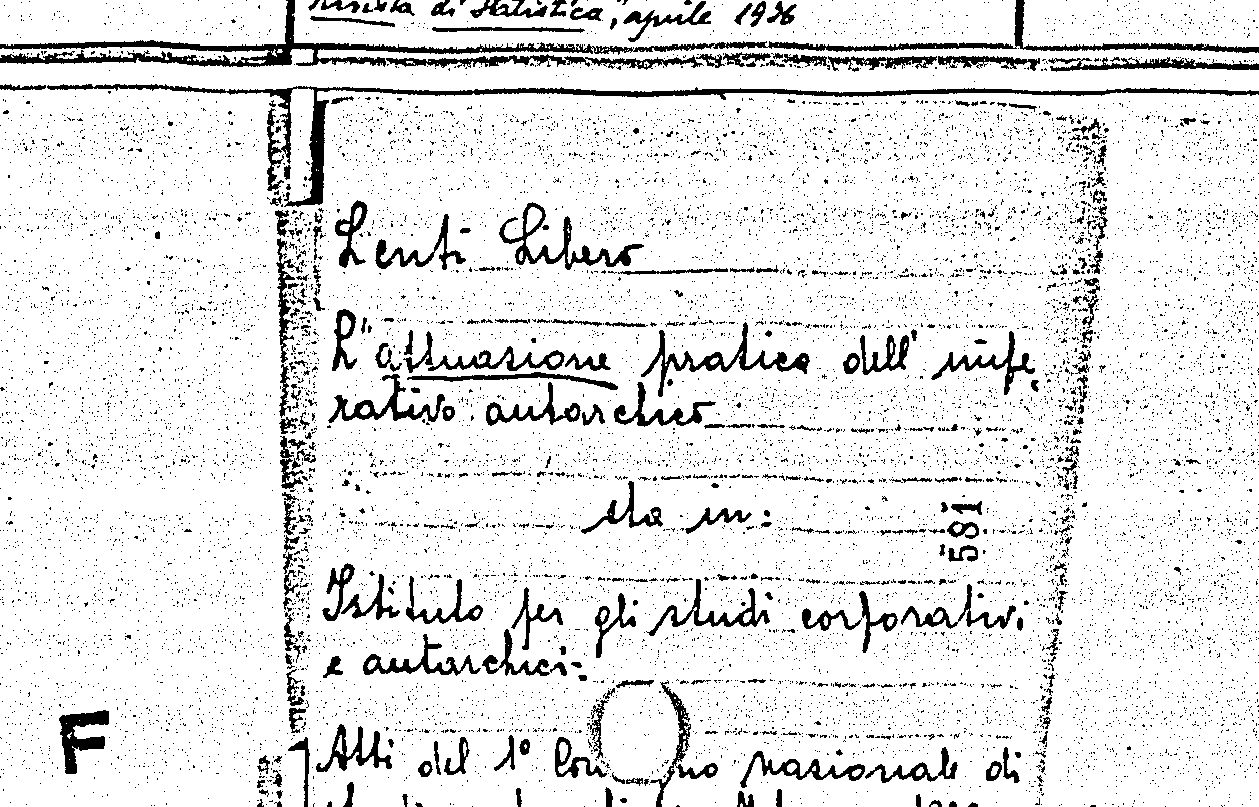 Rivista di Statistica," aprile 1936
Lenti Libero
L'"attuazione pratica dell' impe
rativo autarchico
sta in:
581
Istituto per gli studi corporativi
e autarchici:
F
Atti del 1° nazionale di